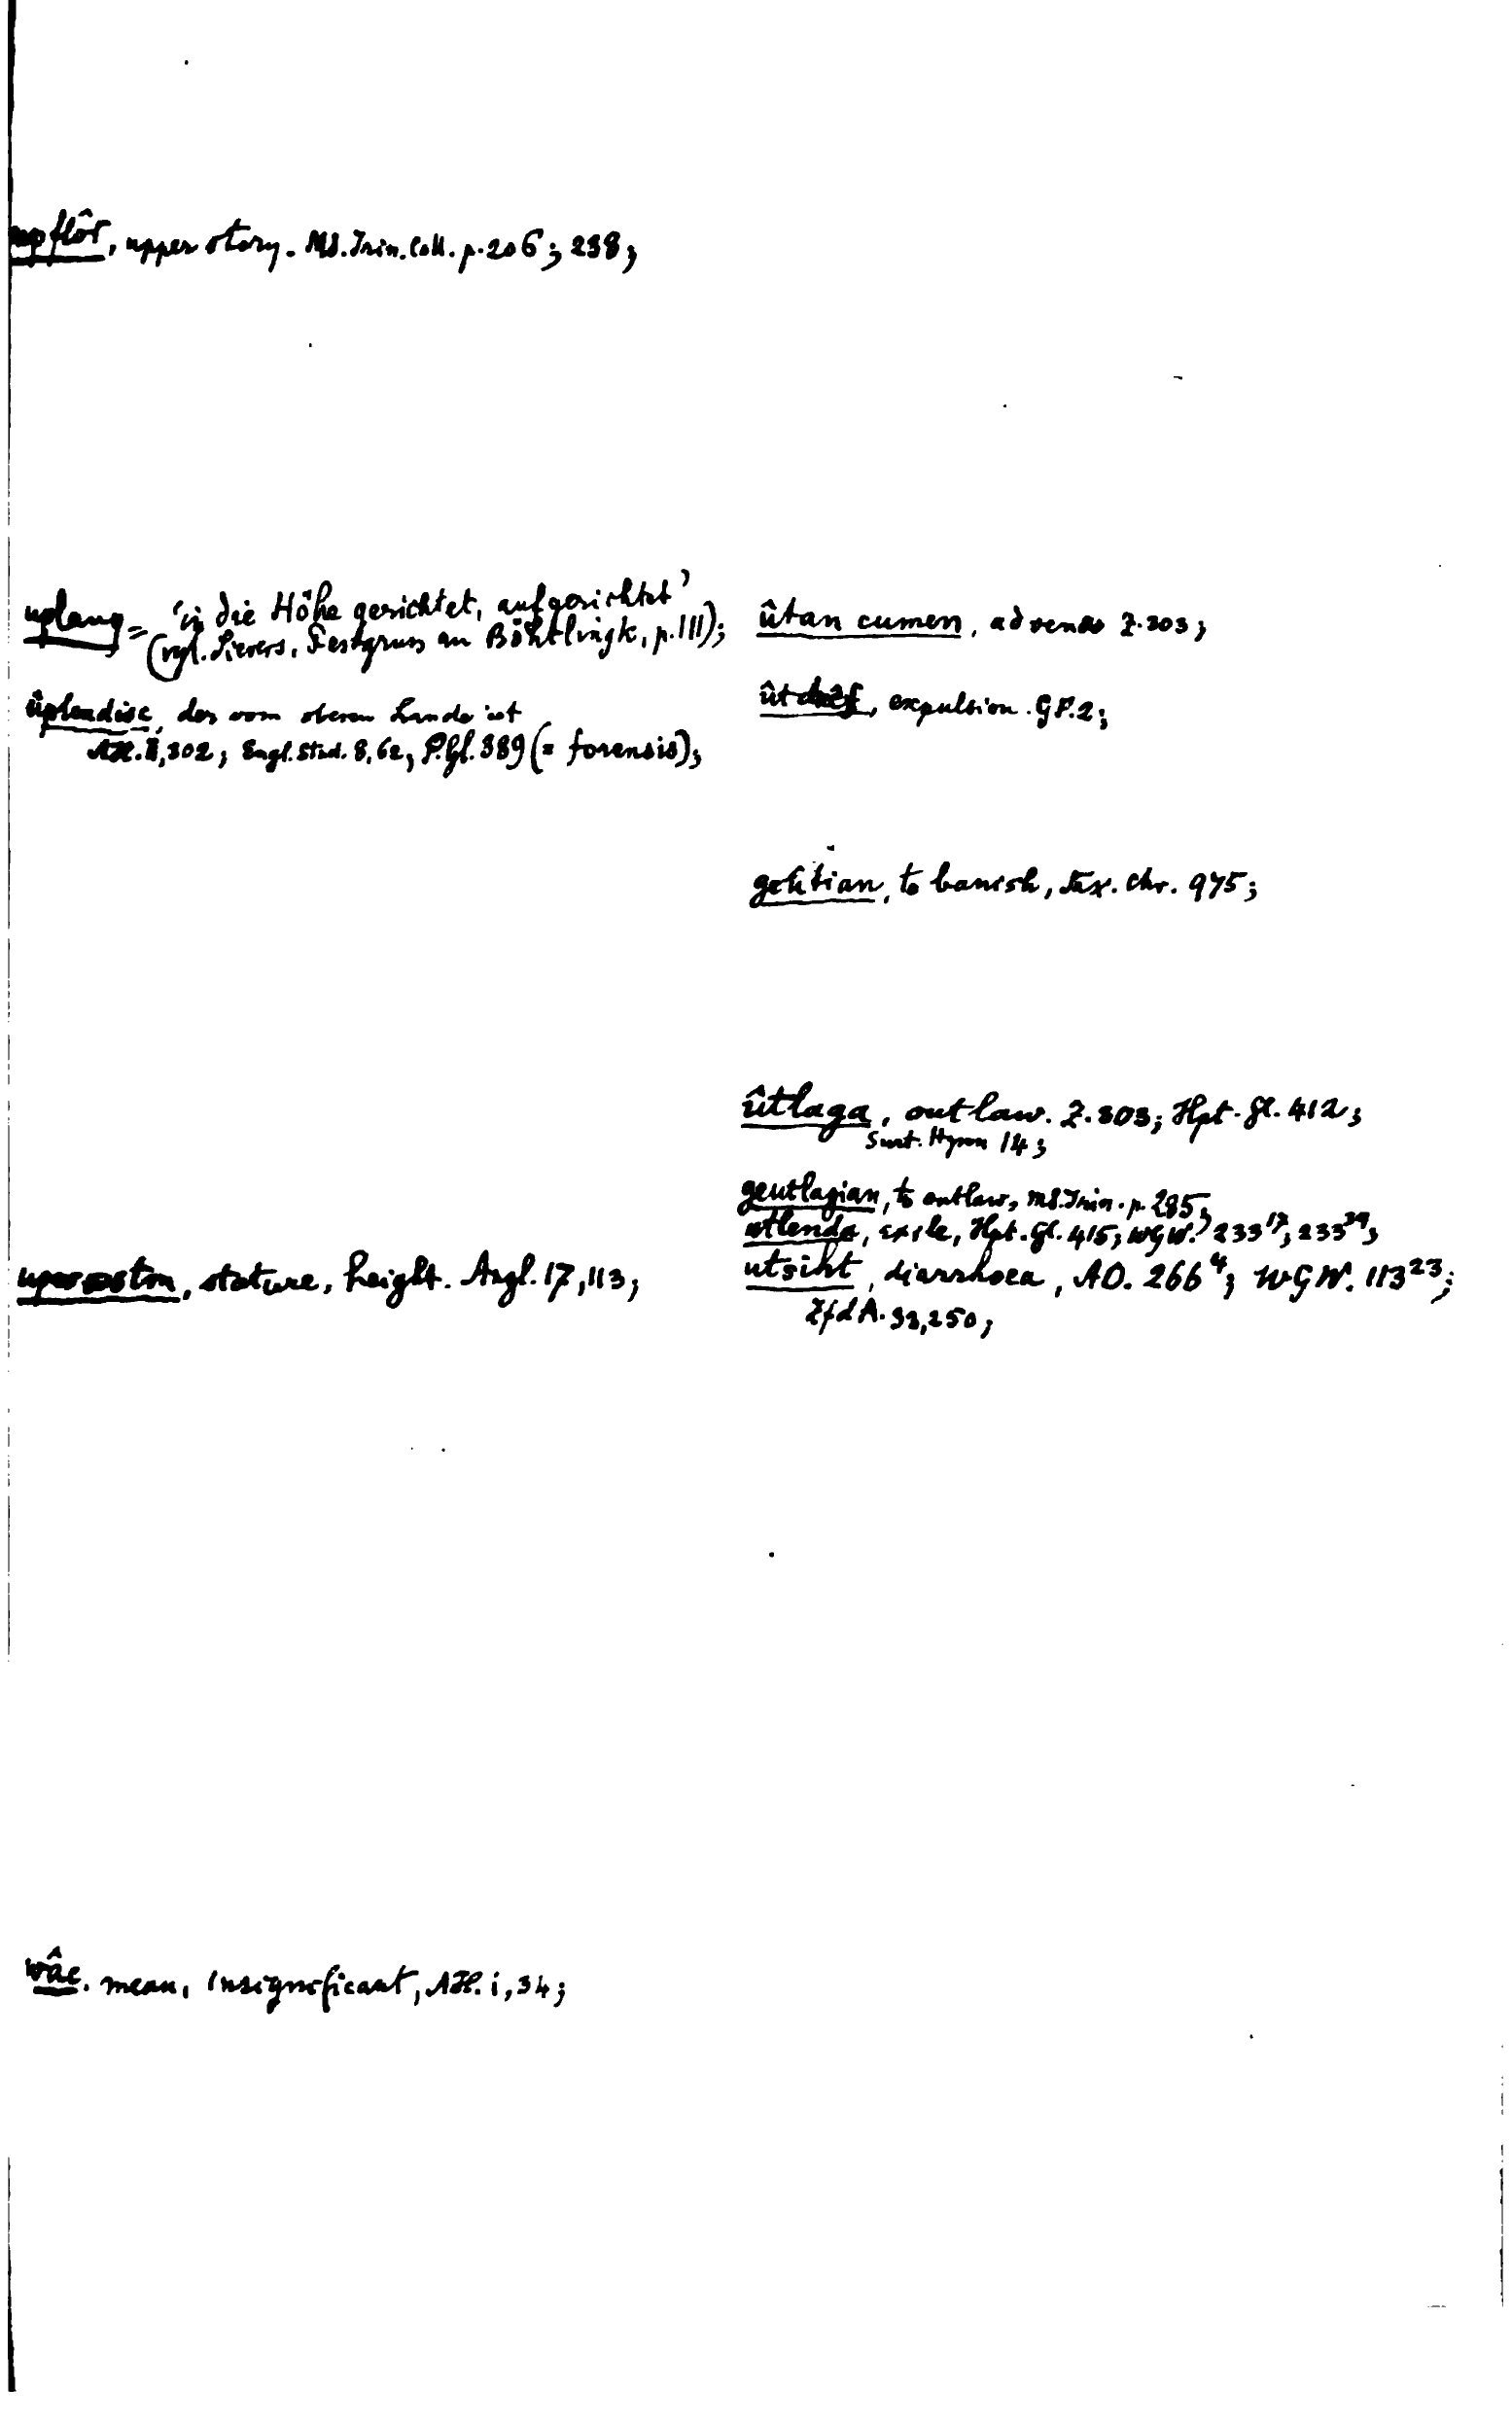 upflôr, upper story. MS. Trin. Coll. p. 206; 238;
uplang = 'in die Höhe gerichtet, aufgerichtet'
(vgl. Sievers, Festgruss an Böhtlingk, p. 111);
ûplendisc, der vom oberen Lande ist
AH. II, 302; Engl. Stud. 8, 62, P. Gl. 389 (= forensis);
stature, height. Angl. 17, 113;
wâc. mean, insignificant, AH. i, 34;
ûtan cumen, advena Z. 303;
ût expulsion. GP. 2;
geûtian, to banish, Sax. Chr. 975;
ûtlaga, outlaw. Z. 303; Hpt. Gl. 412;
Surt. Hymn 14;
geutlagian, to outlaw, MS. Trin. p. 285;
utlenda, exile, Hpt. Gl. 415; WGW. 233 17; 233 29;
utsiht, diarrhoea, AO. 266 4; WGW. 113 23;
ZfdA. 33, 250;